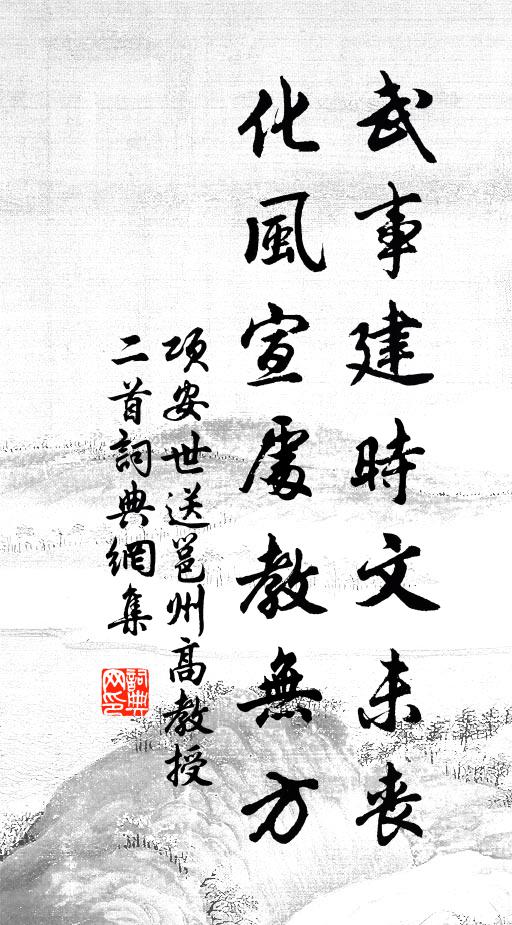 武事建時文未喪
化風宣處教無方
項安世送邕州高教授
二首詞典網集
詞典
网印